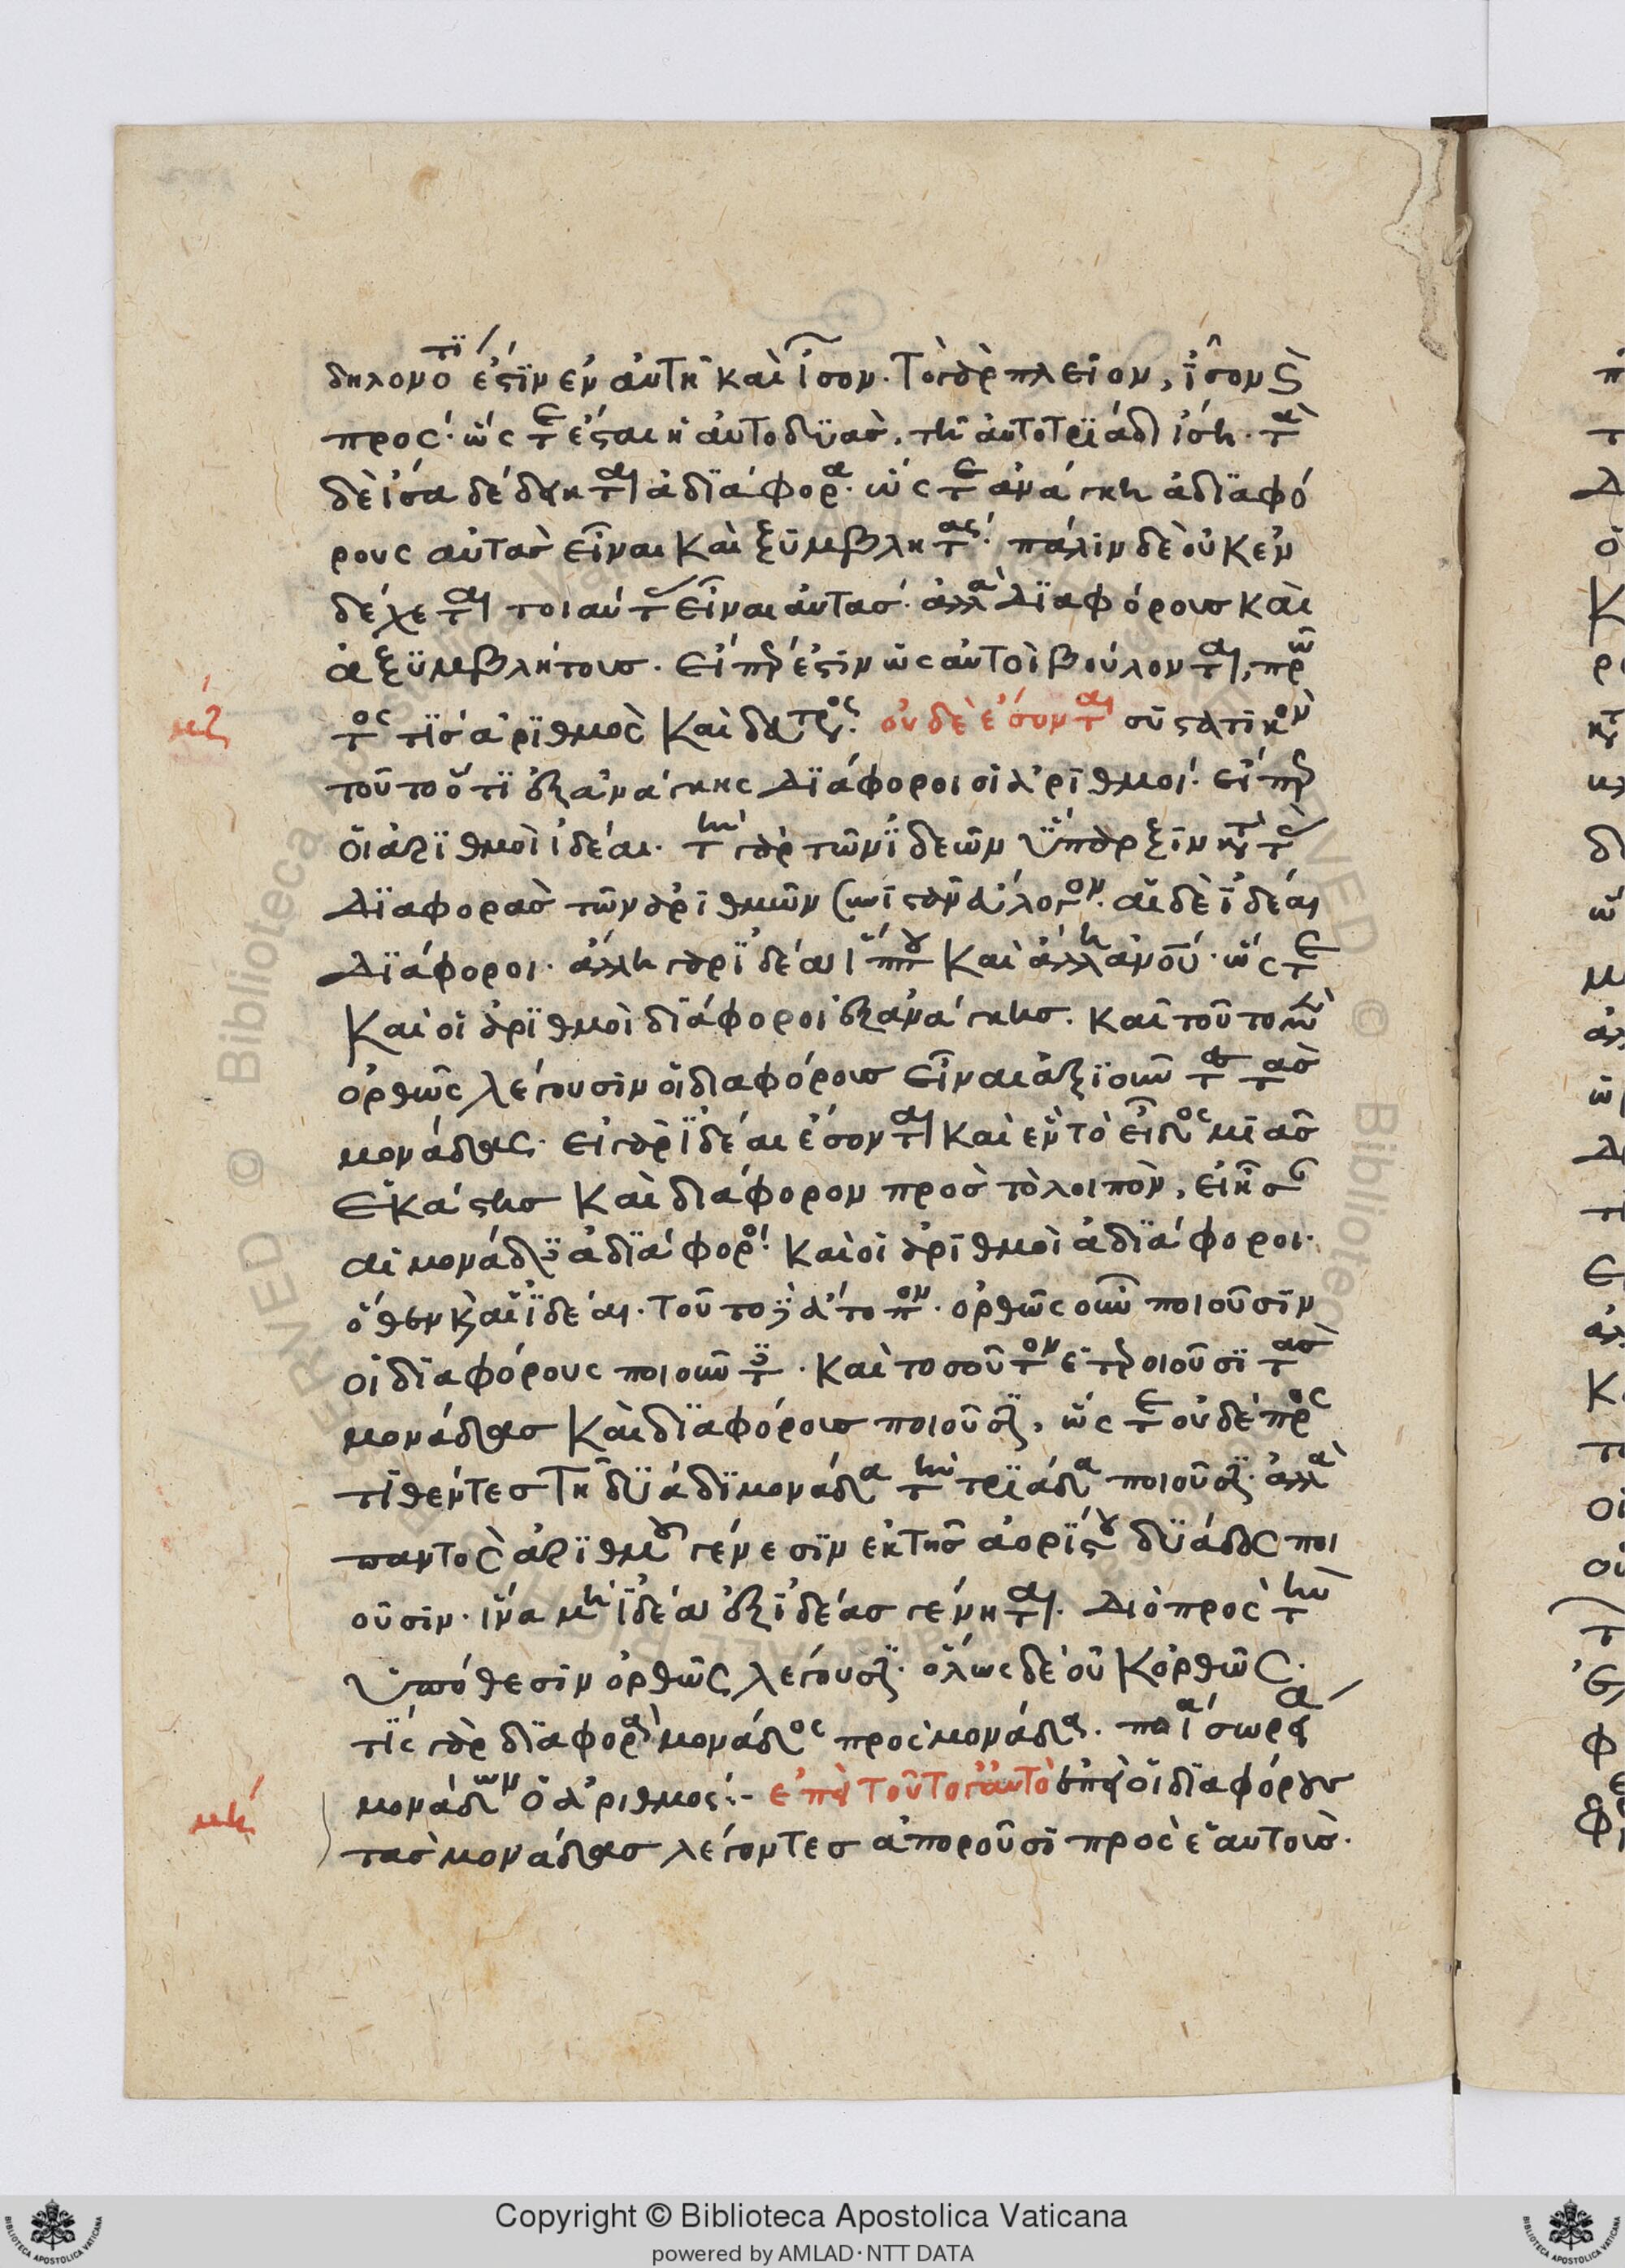 δηλονότι ἐστὶν ἐν αὐτῆ καὶ ἴσον. τὸ γὰρ πλεῖον, ἴσον καὶ
πρός. ὥς τε ἔσται ἡ αὐτοδυὰς, τῆ αὐτοτριάδι ἴση. τὰ
δὲ ἴσα δέδεικται ἀδιάφορα. ὥς τε ἀνάγκη ἀδιαφό
ρους αὐτὰς εἶναι καὶ ξυμβλητάς. πάλιν δὲ οὐκ ἐν
δέχεται τοιαύτας εἶναι αὐτάς. ἀλλὰ διαφόρους καὶ
ἀξυμβλήτους. εἴπερ ἐστὶν ὡς αὐτοὶ βούλονται, πρῶ
τός τις ἀριθμὸς καὶ δεύτερος. οὐδὲ ἔσονται συστατικὸν
τοῦτο ὅτι ἐξ ἀνάγκης διάφοροι οἱ ἀριθμοί. εἴπερ
οἱ ἀριθμοὶ ἰδέαι. τὴν γὰρ τῶν ἰδεῶν ὕπαρξιν κατὰ τὰς
διαφορὰς τῶν ἀριθμῶν ἀνάλογον. αἱ δὲ ἰδέαι
διάφοροι. ἄλλη γὰρ ἰδέα ἵππου καὶ ἄλλη ἀνοῦ. ὥς τε
καὶ οἱ ἀριθμοὶ διάφοροι ἐξ ἀνάγκης. καὶ τοῦτο μὴν
ὀρθῶς λέγουσιν οἱ διαφόρους εἶναι ἀξιοῦντες τὰς
μονάδας. εἰ γὰρ ἰδέαι ἔσονται καὶ ἓν τὸ εἶδος μιᾶς
ἑκάστης καὶ διάφορον πρὸς τὸ λοιπὸν, εἰ ἦσαν
αἱ μονάδες ἀδιάφοροι. καὶ οἱ ἀριθμοὶ ἀδιάφοροι.
ὅθεν καὶ αἱ ἰδέαι. τοῦτο δὲ ἄτοπον. ὀρθῶς οὖν ποιοῦσιν
οἱ διαφόρους ποιοῦντες. καὶ τοσοῦτον ἑτεροιοῦσι τὰς
μονάδας καὶ διαφόρους ποιοῦσιν, ὥς τε οὐδὲ προς
τιθέντες τῆ δυάδι μονάδα τὴν τριάδα ποιοῦσιν. ἀλλὰ
παντὸς ἀριθμοῦ γένεσιν ἐκ τῆς ἀορίστου δυάδος ποι
οῦσιν. ἵνα μὴ ἰδέα ἐξ ἰδέας γένηται. διὸ πρὸς τὴν
ὑπόθεσιν ὀρθῶς λέγουσιν. ὅλως δὲ οὐκ ὀρθῶς.
τίς γὰρ διαφορὰ μονάδος πρὸς μονάδα. σωρεία
μονάδων ὁ ἀριθμός:- ἐπεὶ τοῦτο γ' αὐτὸ ἐπεὶ οἱ διαφόρους
τὰς μονάδας λέγοντες ἀποροῦσι πρὸς ἑαυτούς.
μζ
μη
Copyright © Biblioteca Apostolica Vaticana
powered by AMLAD·NTT DATA